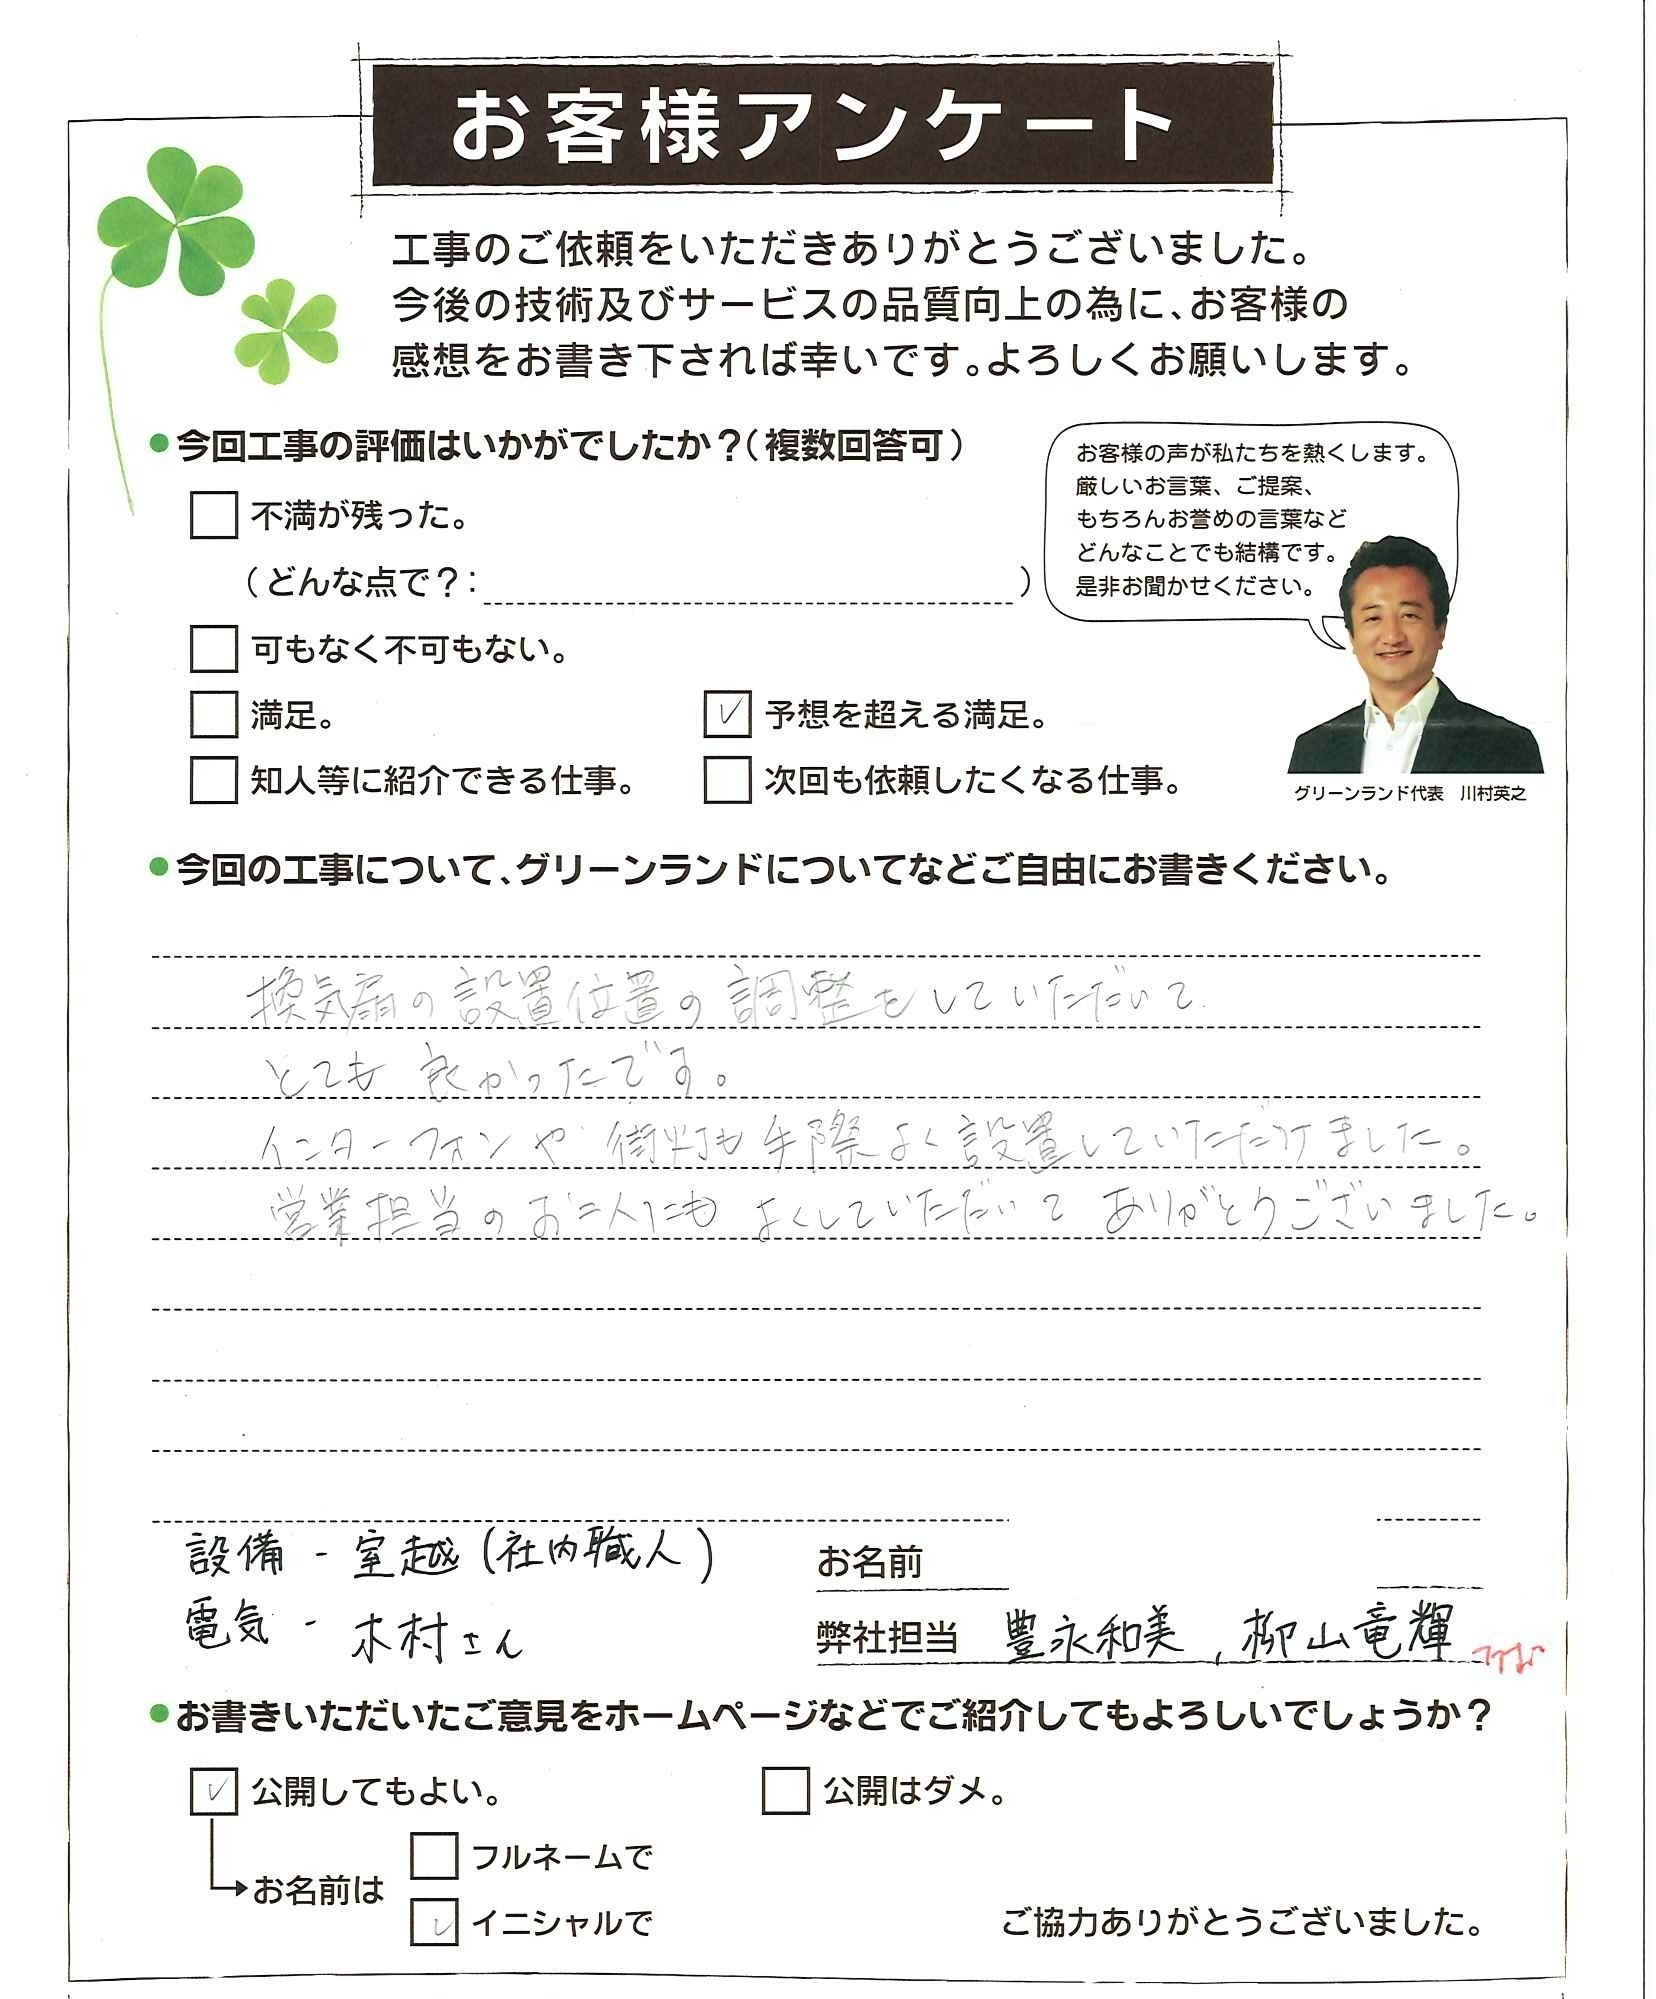 お客様アンケート
工事のご依頼をいただきありがとうございました。
今後の技術及びサービスの品質向上の為に、お客様の
感想をお書き下されば幸いです。よろしくお願いします。
●今回工事の評価はいかがでしたか？（複数回答可）
お客様の声が私たちを熱くします。
厳しいお言葉、ご提案、
もちろんお誉めの言葉など
どんなことでも結構です。
是非お聞かせください。
不満が残った。
（どんな点で？：　）
可もなく不可もない。
満足。
✓ 予想を超える満足。
知人等に紹介できる仕事。
次回も依頼したくなる仕事。
グリーンランド代表　川村英之
●今回の工事について、グリーンランドについてなどご自由にお書きください。
換気扇の設置位置の調整をしていただいて
とても良かったです。
インターフォンや街灯も手際よく設置していただけました。
営業担当のお二人にもよくしていただいてありがとうございました。
設備 - 室越（社内職人）
電気 - 木村さん
お名前
弊社担当　豊永和美，柳山竜輝
●お書きいただいたご意見をホームページなどでご紹介してもよろしいでしょうか？
✓ 公開してもよい。
公開はダメ。
お名前は
フルネームで
✓ イニシャルで
ご協力ありがとうございました。